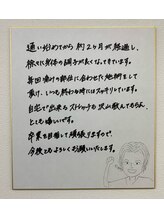 通い始めてから約2ヶ月が経過し、
徐々に身体の調子が良くなってきています。
毎回痛みの部位に合わせた施術をして
頂け、いつも終わる時にはスッキリしています。
自宅で出来るストレッチも沢山教えてもらえ、
とても嬉しいです。
卒業を目指して頑張りますので、
今後ともよろしくお願いいたします。